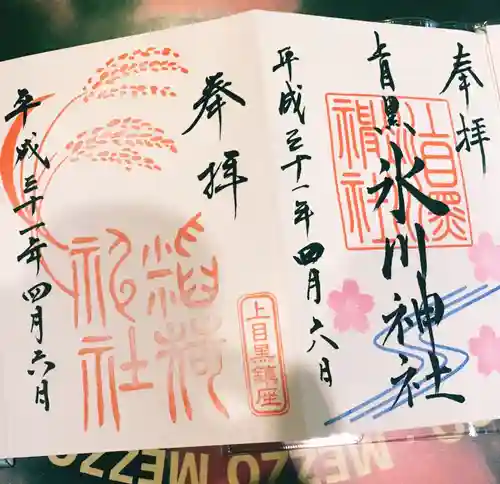 奉拝
上目黒氷川神社
上目黒氷川神社
平成三十一年四月六日
奉拝
稲荷神社
上目黒鎮座
平成三十一年四月六日
MEZZO MEZZO
MEZZO